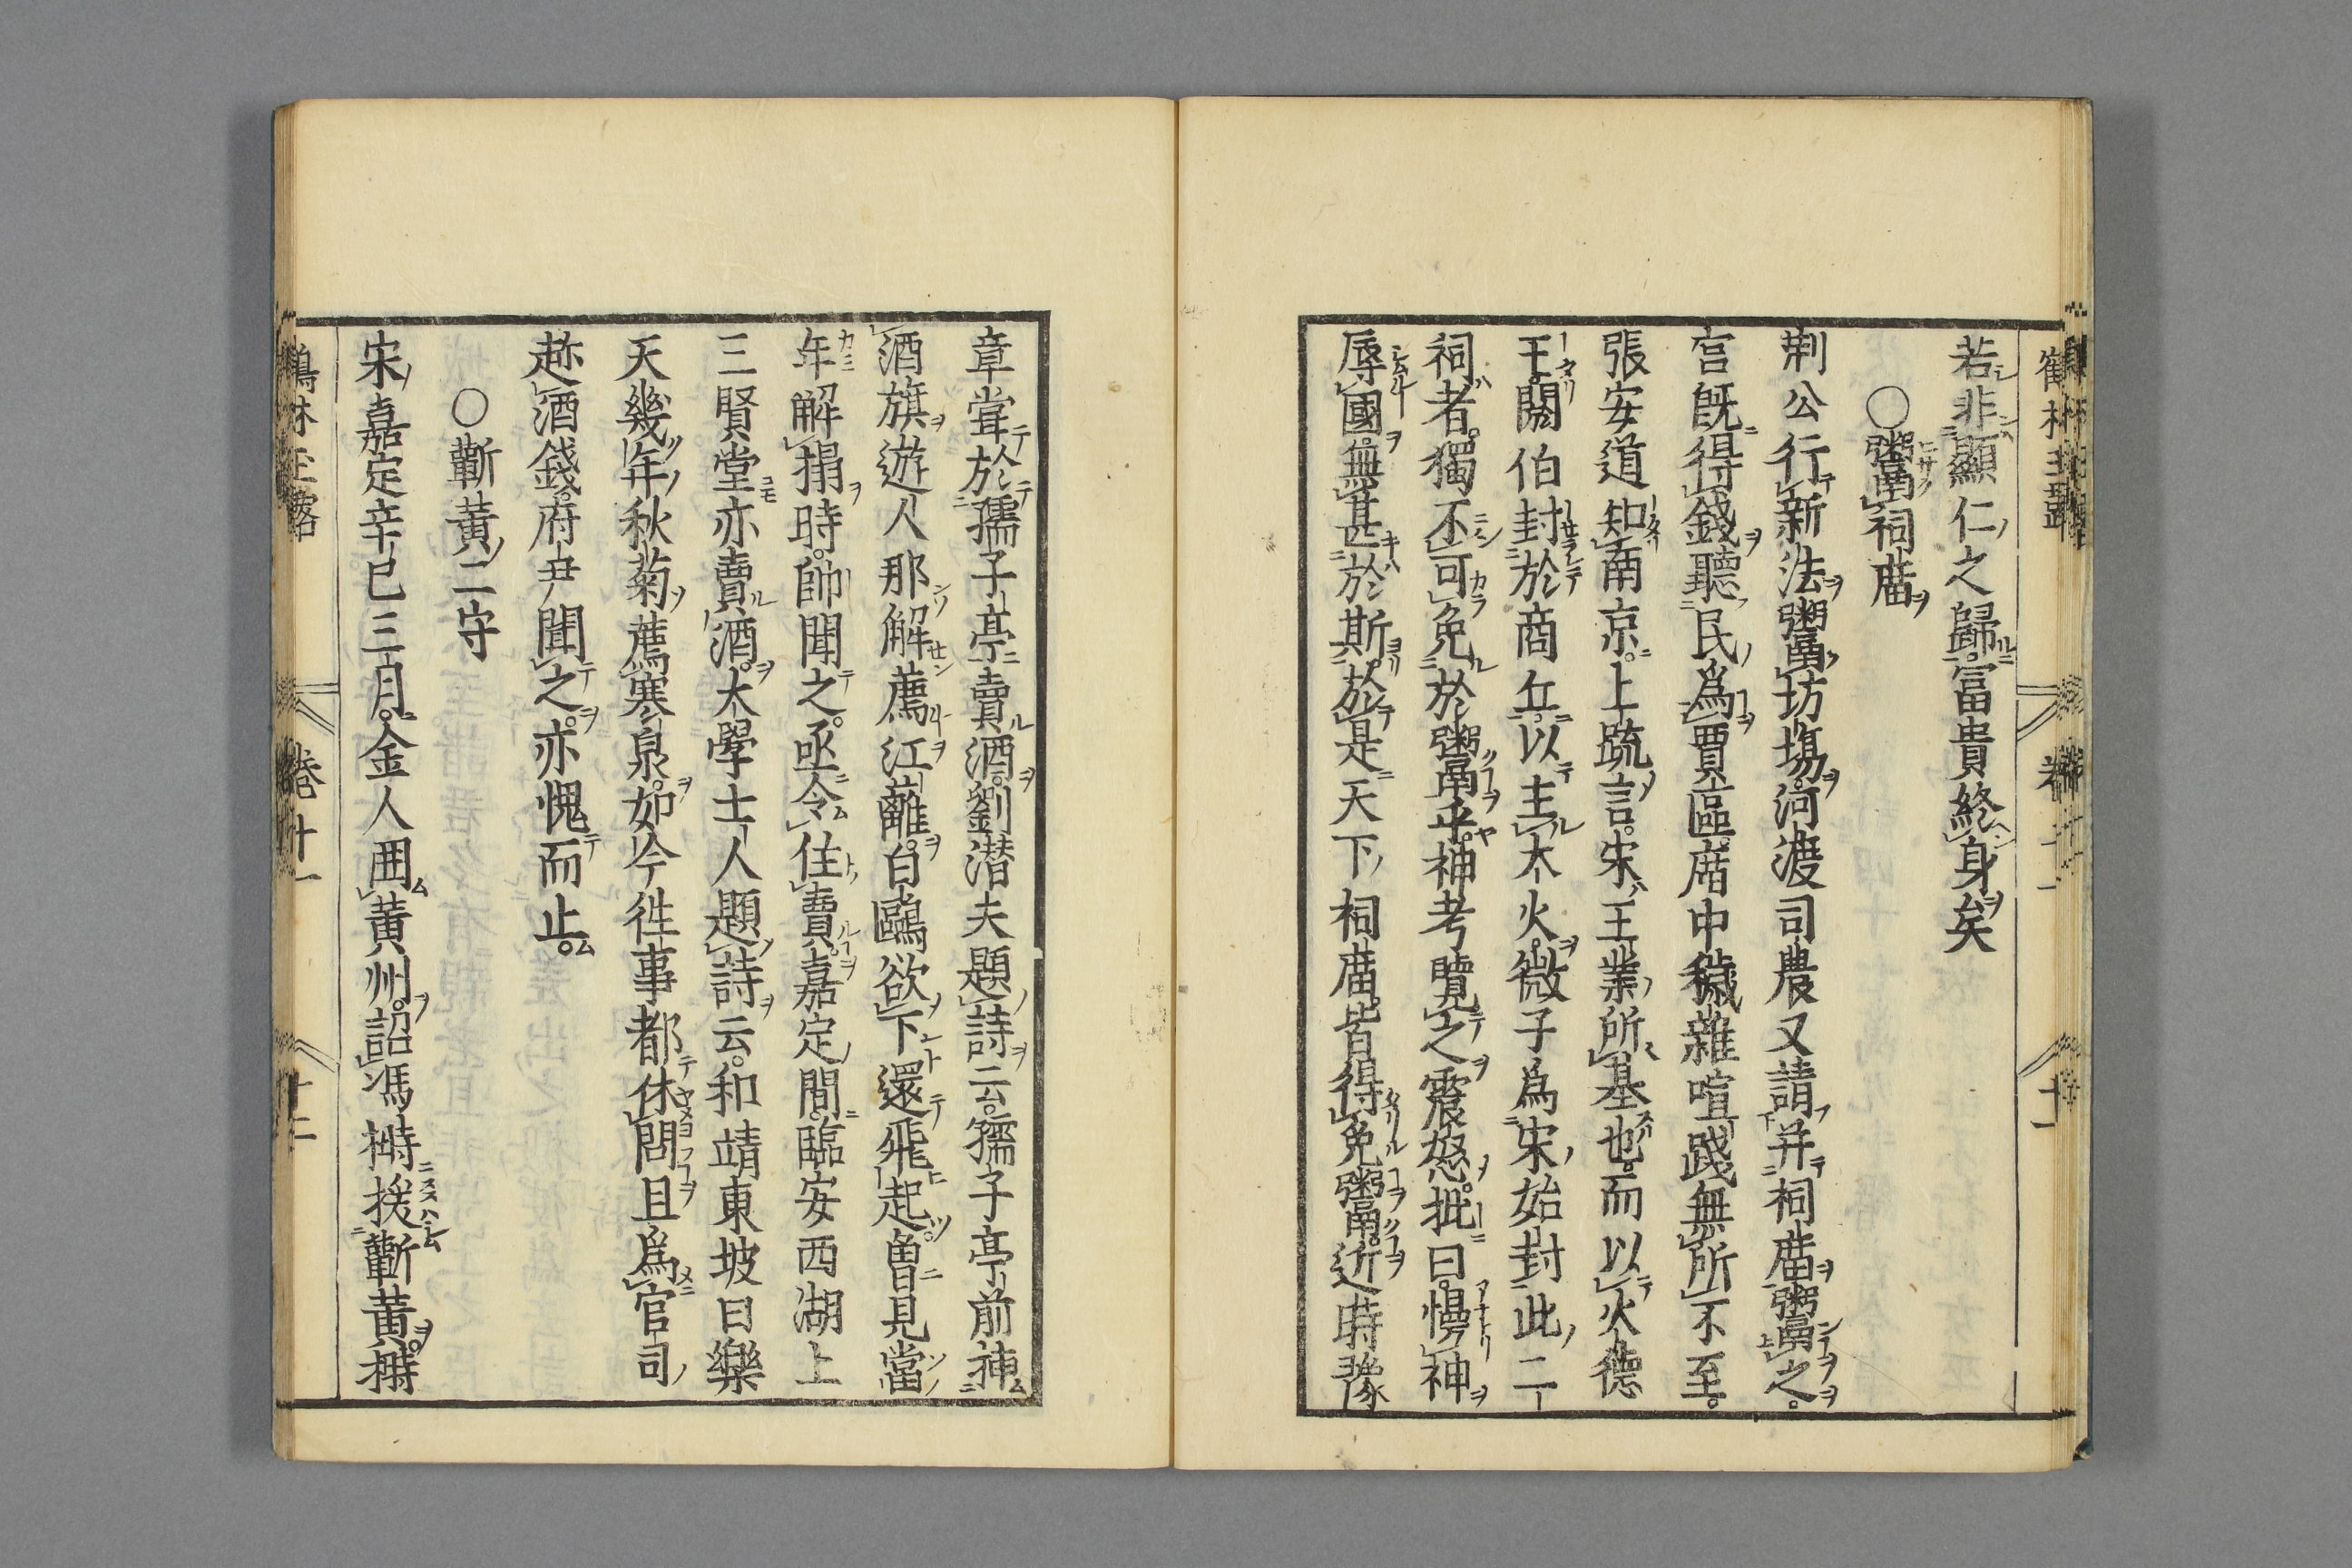 若非顯仁之歸富貴終身矣
○鬻祠廟
荆公行新法鬻坊塲河渡司農又請并祠廟鬻之
官旣得錢聽民爲賈區廟中穢雜喧踐無所不至
張安道知南京上疏言宋王業所基也而以火德
王閼伯封於商丘以主大火微子爲宋始封此二
祠者獨不可免於鬻乎神考覽之震怒批曰慢神
辱國無甚於斯於是天下祠廟皆得免鬻近時豫
章嘗於孺子亭賣酒劉潜夫題詩云孺子亭前神
酒旗遊人那解薦江蘺白鷗欲下還飛起曽見當
年解揭時帥聞之亟令住賣嘉定間臨安西湖上
三賢堂亦賣酒太學士人題詩云和靖東坡白樂
天幾年秋菊薦寒泉如今徃事都休問且爲官司
趂酒錢府尹聞之亦愧而止
○蘄黃二守
宋嘉定辛巳三月金人囲黃州詔馮榯援蘄黃榯
鶴林玉露 卷十一 十二